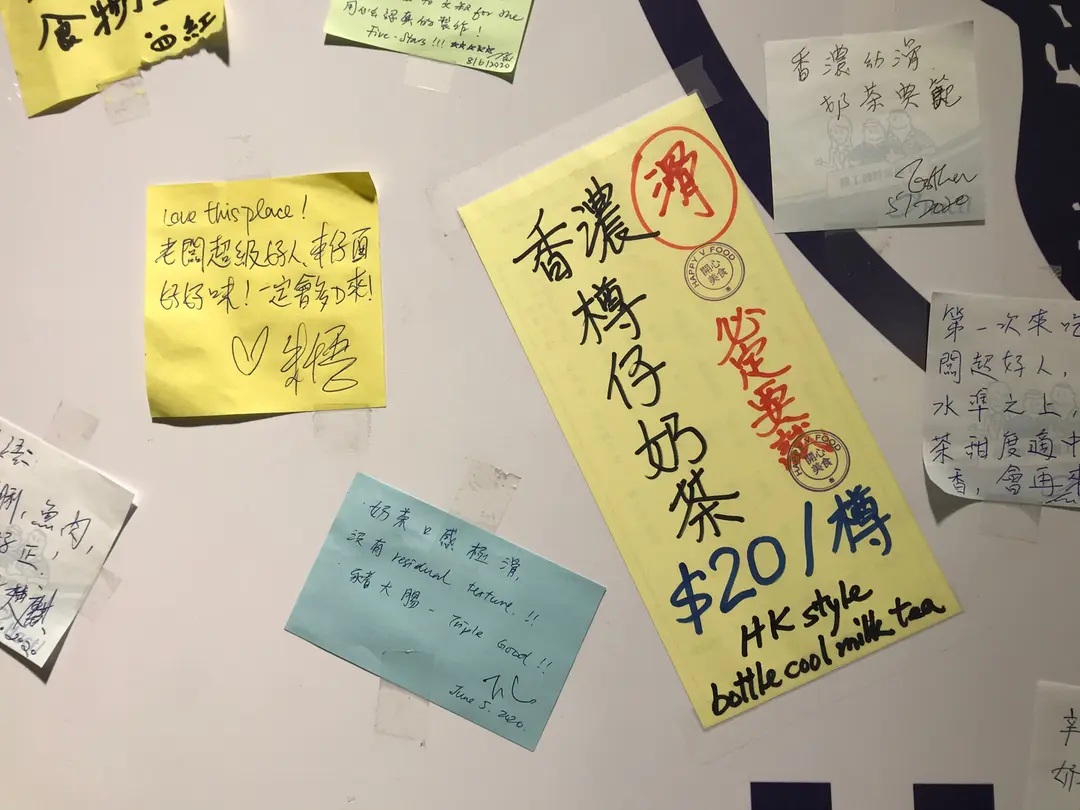 食物
紅
for the
用心認真的製作!
Five-Stars!!! ★★★★★
8/6/2020
香濃幼滑
奶茶典範
5/7/2020
Love this place!
老闆超級好人,車仔面
好好味!一定會多D來!
滑
香濃樽仔奶茶
HAPPY V FOOD
開心
美食
必定要
HAPPY V FOOD
開心
美食
$20/樽
HK style
bottle cool milk tea
第一次來吃
闆超好人,
水準之上,
茶甜度適中
香,會再來
魚肉,
正,
奶茶口感極滑,
沒有 residual texture!!
豬大腸 - Triple Good!!
June 5. 2020.